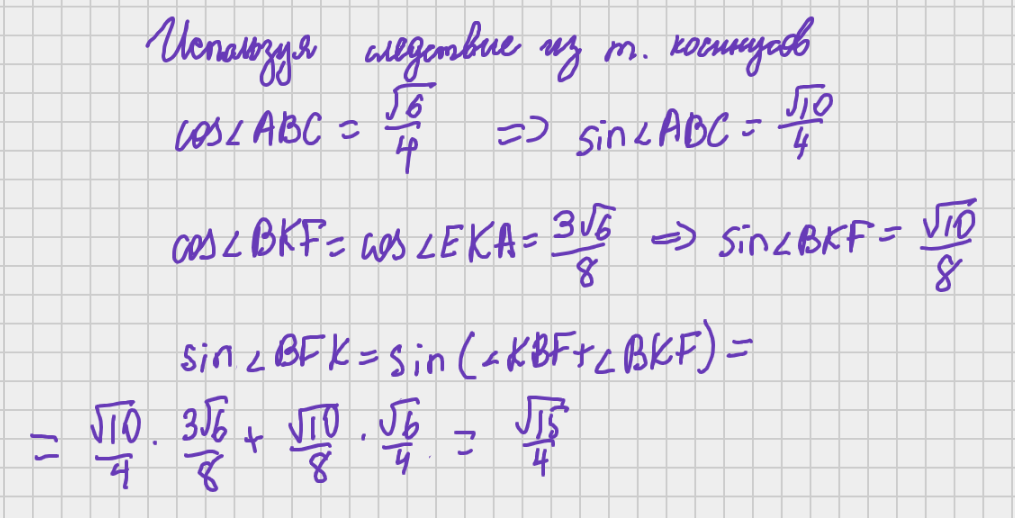 Используя следствие из т. косинусов
cos∠ABC = √6/4 => sin∠ABC = √10/4
cos∠BKF = cos∠EKA = 3√6/8 => sin∠BKF = √10/8
sin∠BFK = sin(∠KBF+∠BKF) =
= √10/4 · 3√6/8 + √10/8 · √6/4 = √15/4